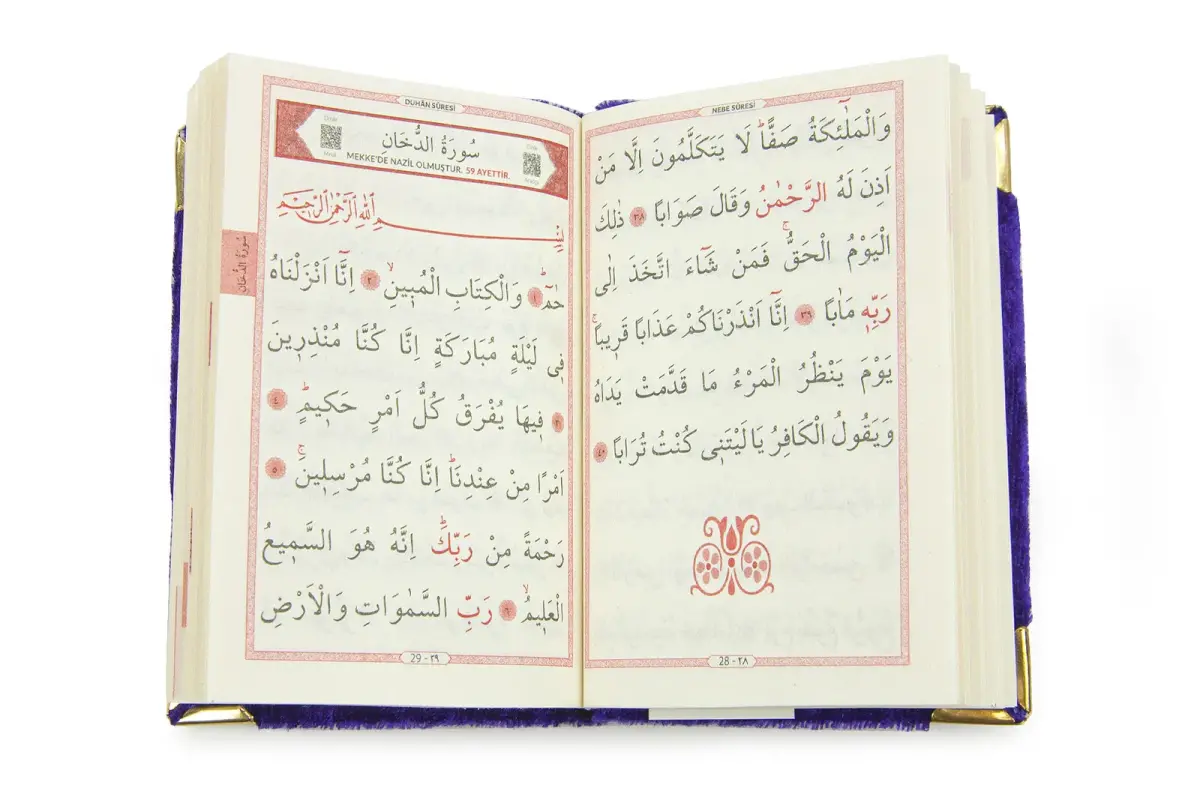 NEBE SÛRESİ
وَالْمَلٰٓئِكَةُ صَفًّاۜ لَا يَتَكَلَّمُونَ اِلَّا مَنْ
اَذِنَ لَهُ الرَّحْمٰنُ وَقَالَ صَوَابًا ٣٨ ذٰلِكَ
الْيَوْمُ الْحَقُّۚ فَمَنْ شَٓاءَ اتَّخَذَ اِلٰى
رَبِّه۪ مَاٰبًا ٣٩ اِنَّٓا اَنْذَرْنَاكُمْ عَذَابًا قَر۪يبًاۚ
يَوْمَ يَنْظُرُ الْمَرْءُ مَا قَدَّمَتْ يَدَاهُ
وَيَقُولُ الْكَافِرُ يَا لَيْتَن۪ي كُنْتُ تُرَابًا ٤٠
28 - ٢٨
DUHÂN SÛRESİ
سُورَةُ الدُّخَانِ
MEKKE'DE NAZİL OLMUŞTUR. 59 AYETTİR.
بِسْمِ اللّٰهِ الرَّحْمٰنِ الرَّح۪يمِ
سُورَةُ الدُّخَانِ
حٰمٓۜ ١ وَالْكِتَابِ الْمُب۪ينِۙ ٢ اِنَّٓا اَنْزَلْنَاهُ
ف۪ي لَيْلَةٍ مُبَارَكَةٍ اِنَّا كُنَّا مُنْذِر۪ينَ
٣ ف۪يهَا يُفْرَقُ كُلُّ اَمْرٍ حَك۪يمٍۜ ٤
اَمْرًا مِنْ عِنْدِنَاۜ اِنَّا كُنَّا مُرْسِل۪ينَۚ ٥
رَحْمَةً مِنْ رَبِّكَۜ اِنَّهُ هُوَ السَّم۪يعُ
الْعَل۪يمُۙ ٦ رَبِّ السَّمٰوَاتِ وَالْاَرْضِ
29 - ٢٩